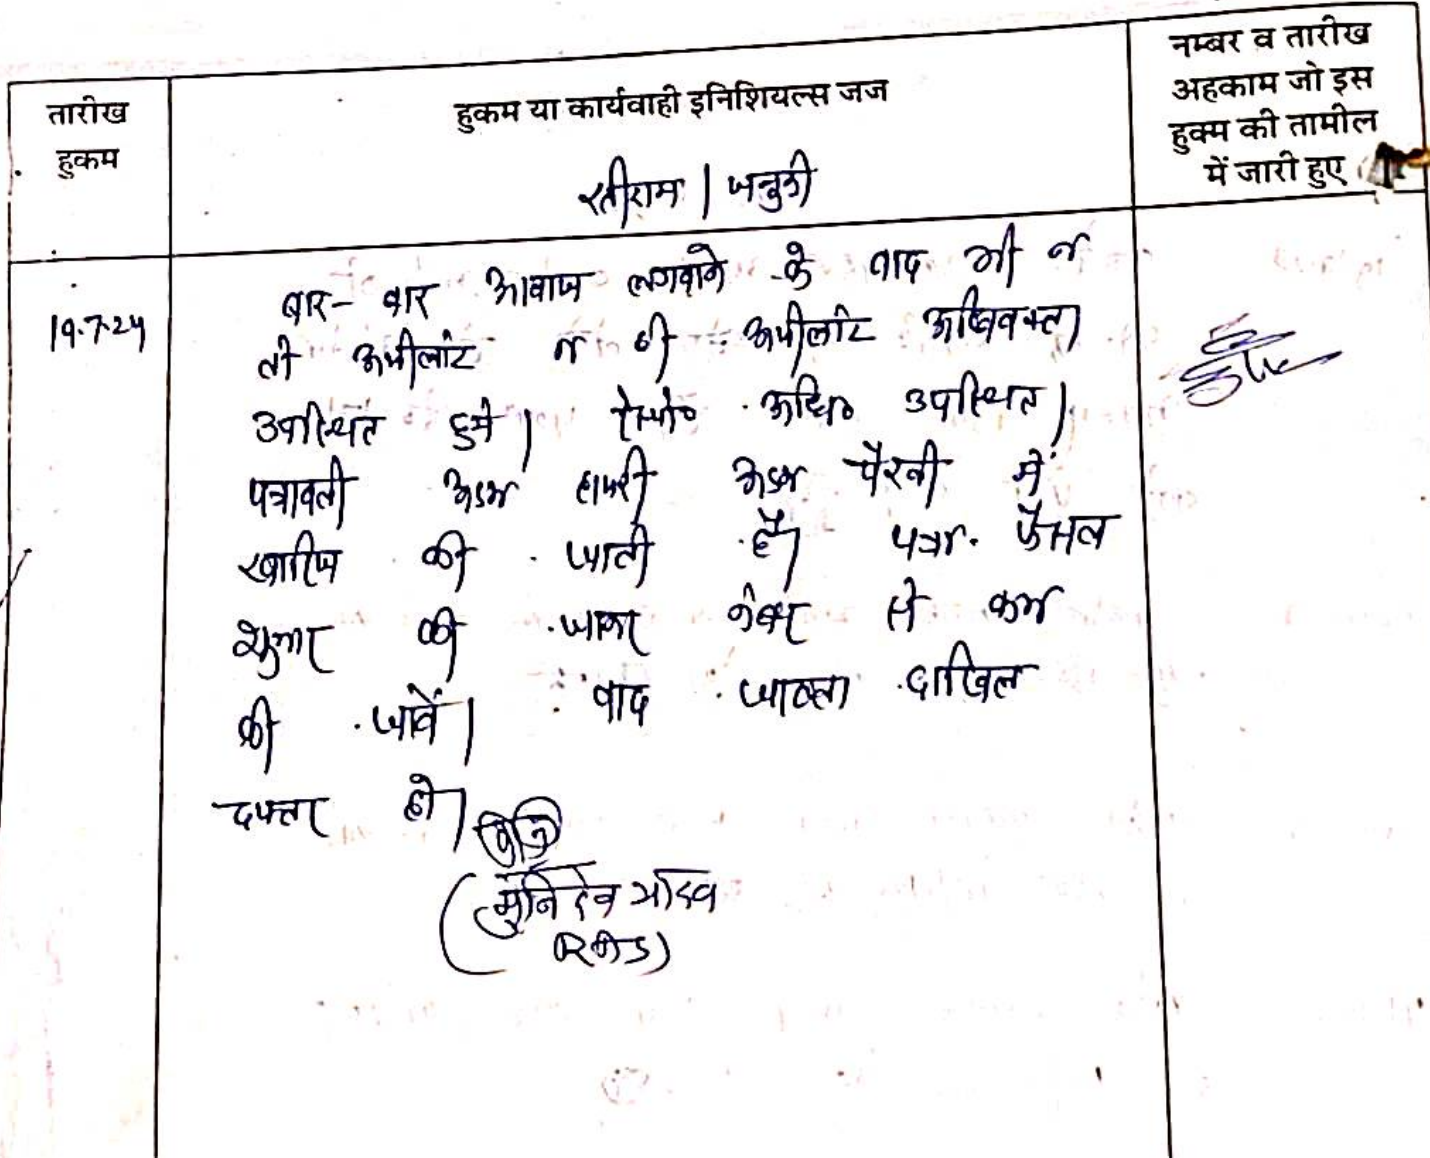 तारीख
हुकम
हुकम या कार्यवाही इनिशियल्स जज
नम्बर व तारीख
अहकाम जो इस
हुक्म की तामील
में जारी हुए
रतीराम |
19.7.24
बार-बार आवाज लगवाने के बाद भी न
तो अपीलांट न ही अपीलांट अधिवक्ता
उपस्थित हुये। रेस्पो० अधि० उपस्थित।
पत्रावली अदम हाजरी अदम पैरवी में
खारिज की जाती है। पत्रा. फैसल
शुमार की जाकर नंबर से कम
की जावें। बाद जाब्ता दाखिल
दफ्तर हो।
(मुनिदेव यादव